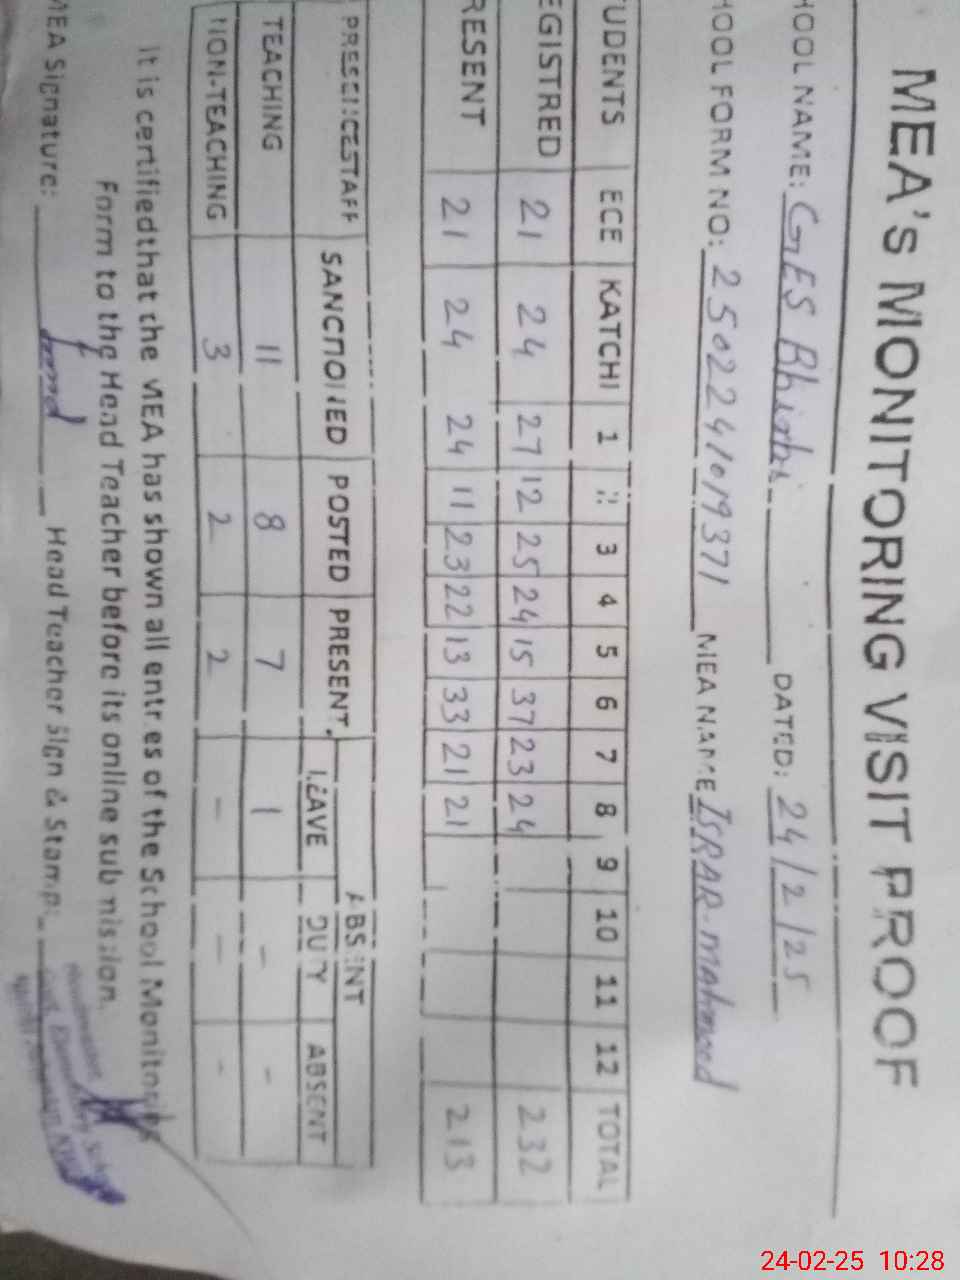 MEA'S MONITORING VISIT PROOF
HOOL NAME: GES Bhirhi DATED: 24/2/25
HOOL FORM NO: 2502241019371 MEA NAME ISRAR Mahmood
UDENTS ECE KATCHI 1 2 3 4 5 6 7 8 9 10 11 12 TOTAL
EGISTRED 21 24 27 12 25 24 15 37 23 24 232
RESENT 21 24 24 11 23 22 13 33 21 21 213
PRESENCESTAFF SANCTIONED POSTED PRESENT ABSENT
LEAVE DUTY ABSENT
TEACHING 11 8 7 1 - -
NON-TEACHING 3 2 2 - - -
It is certifiedthat the MEA has shown all entries of the School Monitoring
Form to the Head Teacher before its online submission.
MEA Signature: Head Teacher Sign & Stamp:
Headmaster
Govt. Elementary School
24-02-25 10:28